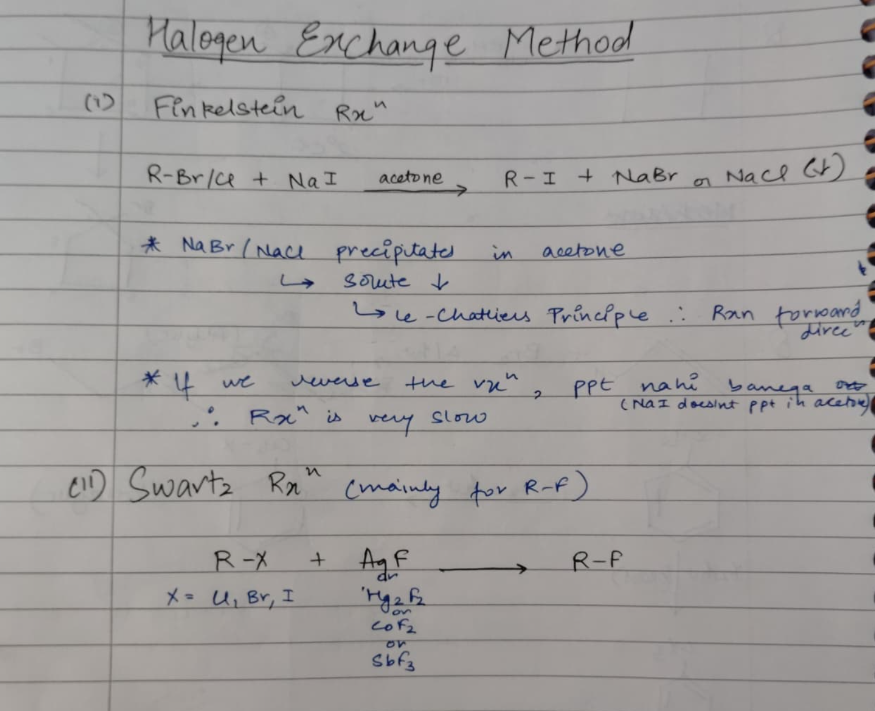 Halogen Exchange Method
(i) Finkelstein Rxⁿ
R-Br/Cl + NaI acetone → R-I + NaBr or NaCl (↓)
* NaBr/NaCl precipitates in acetone
↳ Solute ↓
↳ Le-Chatliers Principle ∴ Rxn forward
direcⁿ
* If we reverse the rxⁿ, ppt nahi banega
(NaI doesint ppt in acetone)
∴ Rxⁿ is very slow
(ii) Swartz Rxⁿ (mainly for R-F)
R-X + AgF → R-F
or
X = Cl, Br, I Hg₂F₂
or
CoF₂
or
SbF₃